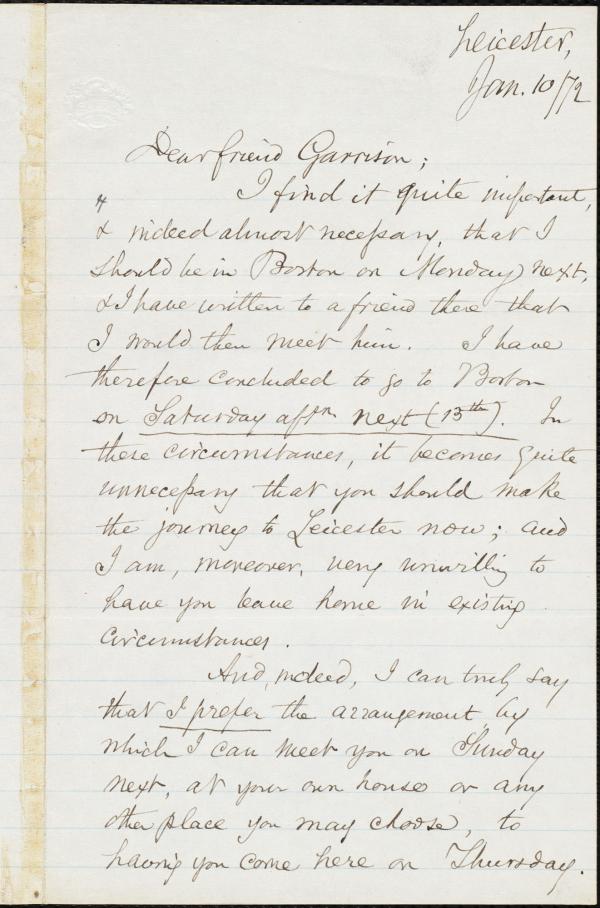 Leicester,
Jan. 10/72
Dear friend Garrison;
I find it quite important,
& indeed almost necessary, that I
should be in Boston on Monday next,
& I have written to a friend there that
I would then meet him. I have
therefore concluded to go to Boston
on Saturday aftn next (13th). In
these circumstances, it becomes quite
unnecessary that you should make
the journey to Leicester now; and
I am, moreover, very unwilling to
have you leave home in existing
circumstances.
And, indeed, I can truly say
that I prefer the arrangement by
which I can meet you on Sunday
next, at your own house or any
other place you may choose, to
having you come here on Thursday.